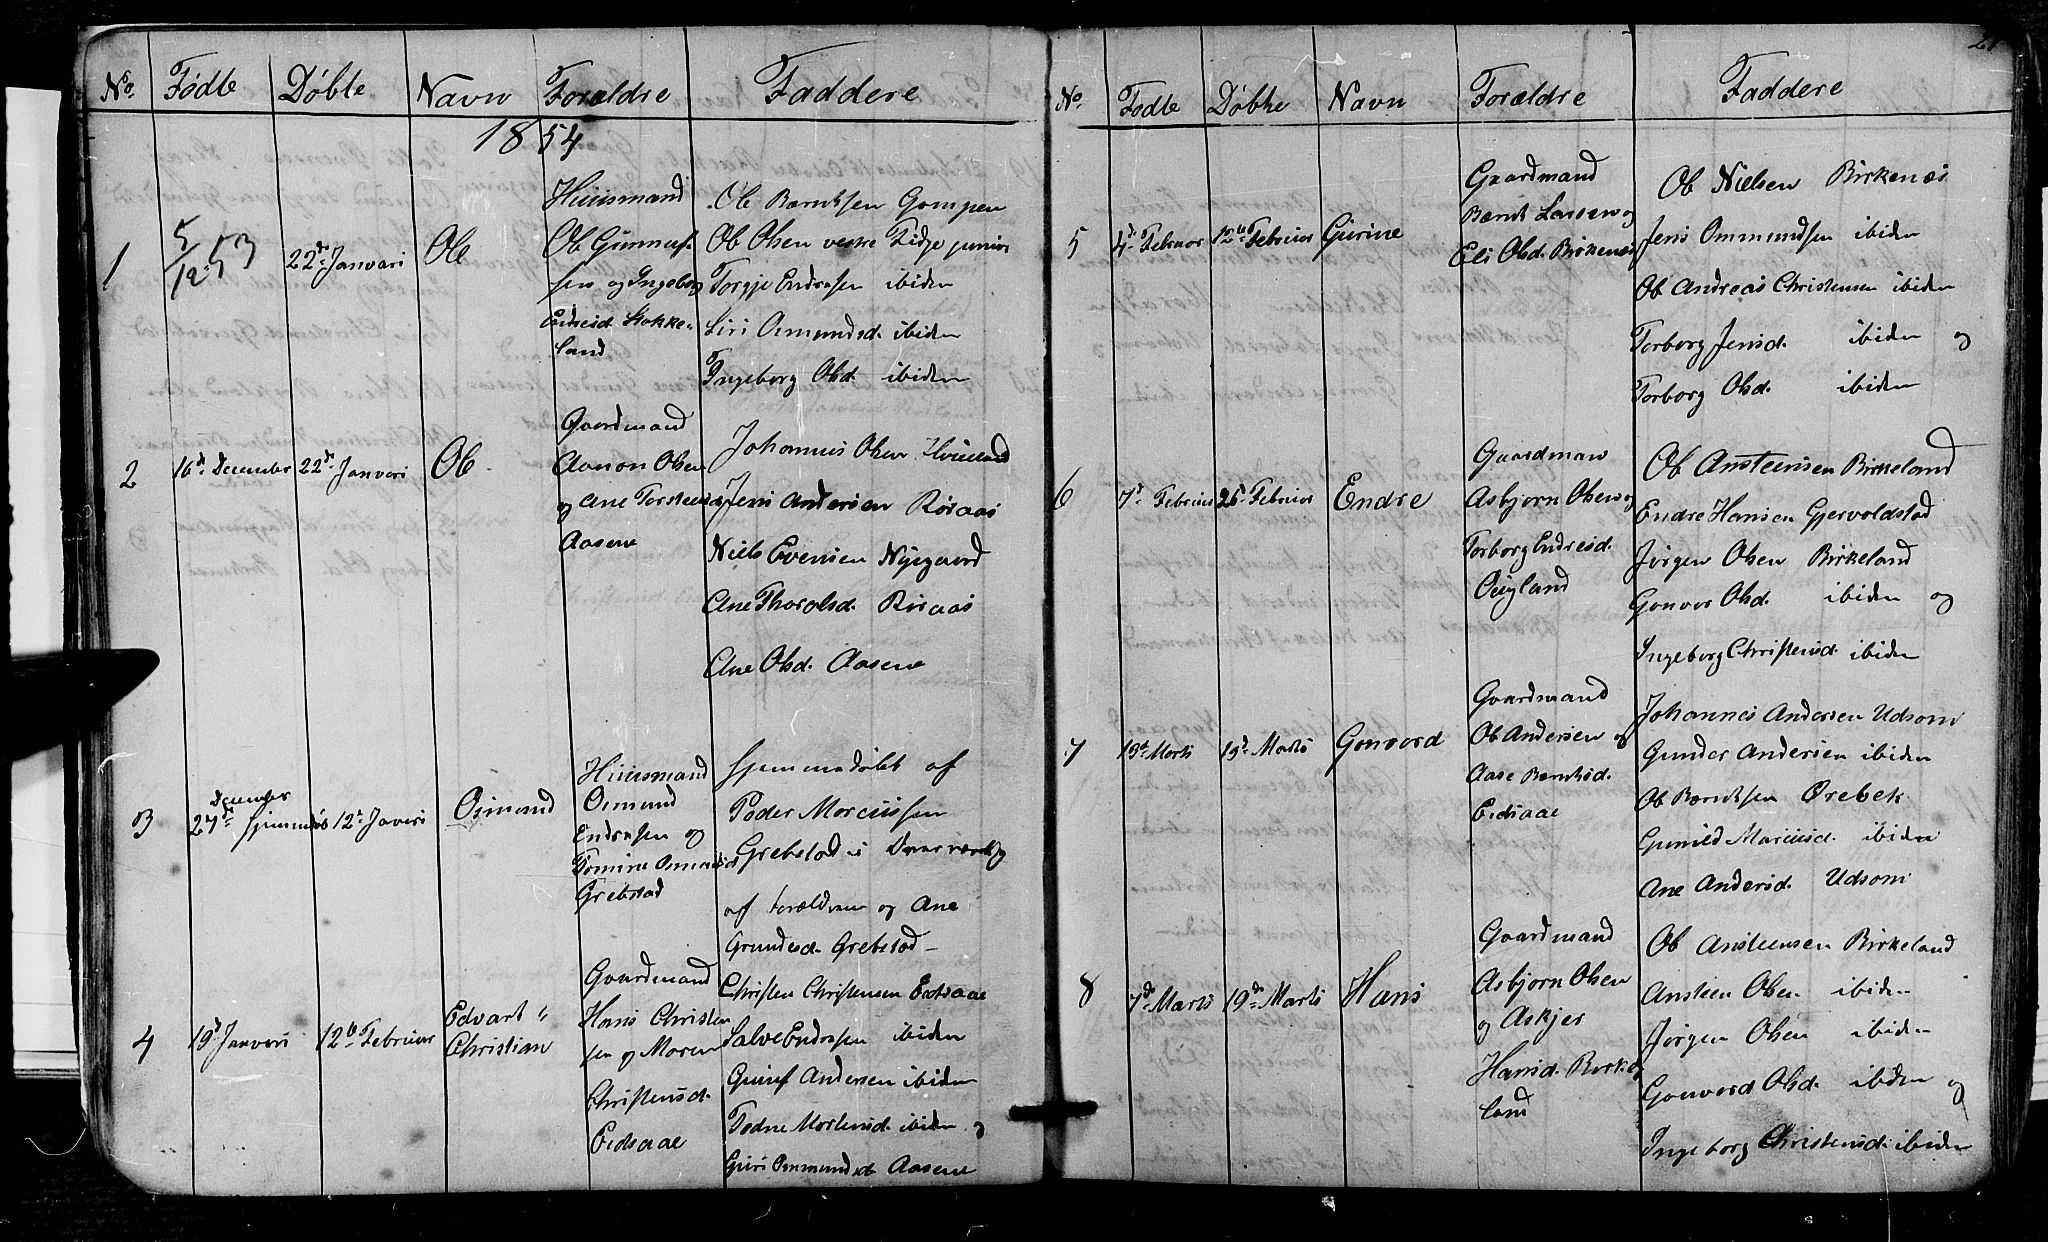 No. Fødte Døbte Navn Forældre Faddere
1854
1
5/12 53
22de Januari
Ole
Huusmand
Ole Gunnuf-
sen og Ingeborg
Endresd. Stokke-
land
Ole Berntsen Gompen
Ole Olsen vestre Eidje junior
Torgje Endresen ibiden
Siri Osmundsd. ibiden
Ingeborg Olsd. ibiden
2
16d. December
22de Januari
Ole
Gaardmand
Aanon Olsen
og Ane Torsteensd.
Aasene
Johannes Olsen
Jens Andersen Røraas
Niels Evensen Nygaard
Ane Tharalsd. Røraas
Ane Olsd. Aasene
3
December
27de hjemmedøb
12te Januari
Osmond
Huusmand
Osmund
Endresen og
Tomine Osmundsd.
Grebstad
hjemmedøbt af
Peder Marcussen
Grebstad i
af Forældrene og Ane
Grundesd. Grebstad
4
19d Januari
12te Februar
Edvart
Christian
Gaardmand
Hans Christen
sen og Maren
Christensd.
Eidsaae
Christen Christensen Eidsaae
Salve Endresen ibiden
Guuf Andersen ibiden
Todne Mortensd. ibiden og
Guri Ommundsd. Aasene
No. Fødte Døbte Navn Forældre Faddere
5
4d. Februar
12te Februar
Gurine
Gaardmand
Bernt Larsen og
Eli Olsd. Birkenæs
Ole Nielsen Birkenæs
Jens Ommundsen ibiden
Ole Andreas Christensen ibiden
Torborg Jensd. ibiden og
Torborg Olsd. ibiden
6
7d. Februar
26d. Februar
Endre
Gaardman
Asbjørn Olsen og
Torborg Endresd.
Øigland
Ole Ansteensen Birkeland
Endre Hansen Gjervoldstad
Jørgen Olsen Birkeland
Gonvor Olsd. ibiden og
Ingeborg Christensd. ibiden
7
13d. Marts
19d. Marts
Gonvord
Gaardmand
Ole Andersen og
Aase Berntsd.
Eidsaae
Johannes Andersen Udsom
Gunder Andersen ibiden
Ole Berntsen Ørebek
Gunild Marcusd. ibiden
Ane Andersd. Udsom
8
7de Marts
19de Marts
Hans
Gaardmand
Asbjørn Olsen
og Askjer
Hansd. Birke
land
Ole Ansteensen Birkeland
Ansteen Olsen ibiden
Jørgen Olsen ibiden
Gonvord Olsd. ibiden og
Ingeborg Christensd. ibiden